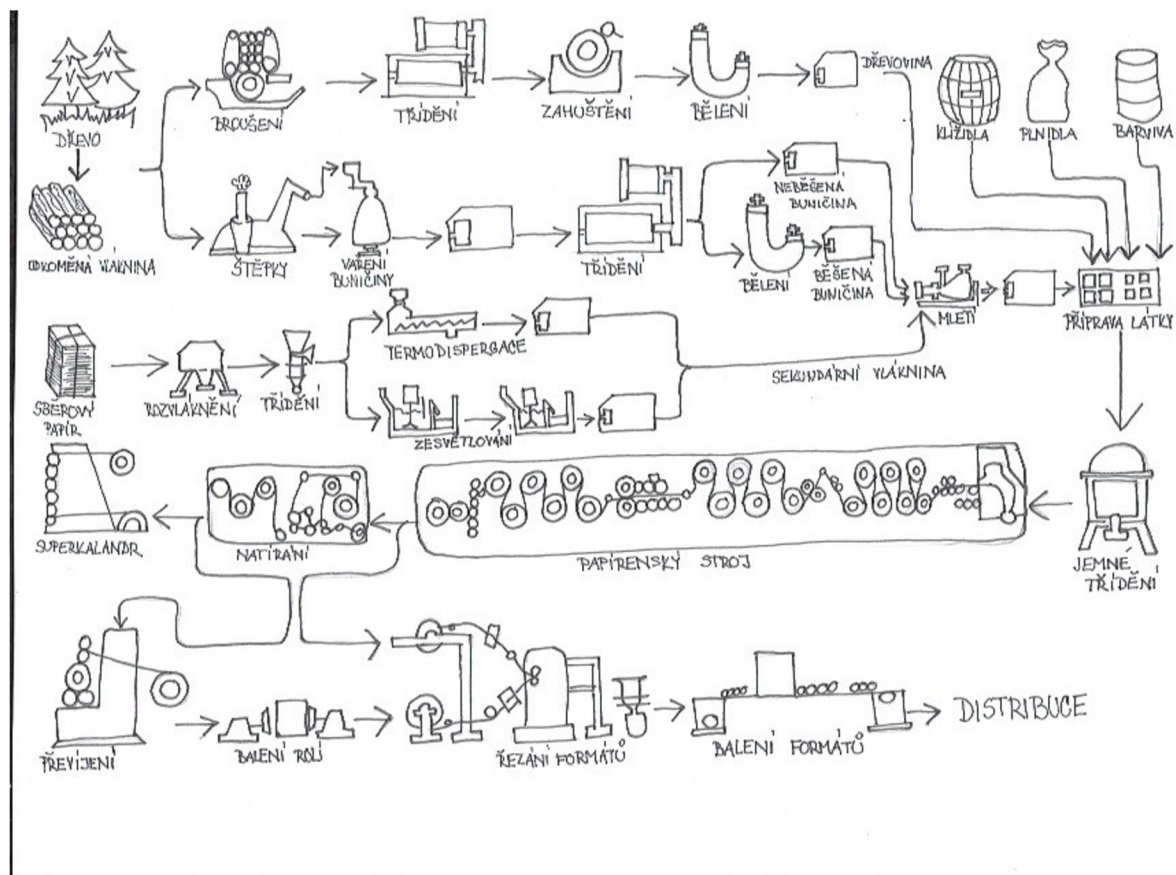 DŘEVO
ODKORNĚNÁ VLÁKNINA
BROUŠENÍ
TŘÍDĚNÍ
ZAHUŠTĚNÍ
BĚLENÍ
DŘEVOVINA
KLÍŽIDLA
PLNIDLA
BARVIVA
ŠTĚPKY
VAŘENÍ
BUNIČINY
TŘÍDĚNÍ
NEBĚŠENÁ
BUNIČINA
BĚLENÍ
BĚŠENÁ
BUNIČINA
MLETÍ
PŘÍPRAVA LÁTKY
SBĚROVÝ
PAPÍR
ROZVLÁKNĚNÍ
TŘÍDĚNÍ
TERMODISPERGACE
ZESVĚTLOVÁNÍ
SEKUNDÁRNÍ VLÁKNINA
SUPERKALANDR
NATÍRÁNÍ
PAPÍRENSKÝ STROJ
JEMNÉ
TŘÍDĚNÍ
PŘEVÍJENÍ
BALENÍ ROLÍ
ŘEZÁNÍ FORMÁTŮ
BALENÍ FORMÁTŮ
DISTRIBUCE